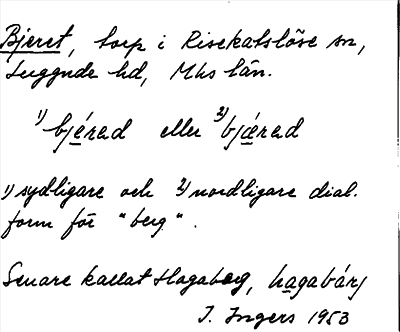 Bjeret, torp i Risekatslöse sn,
Luggude hd, Mhs län.
1) bjérad eller 2) bjærad
1) sydligare och 2) nordligare dial.
form för "berg".
Senare kallat Hagaberg, hagabárj
I. Ingers 1953